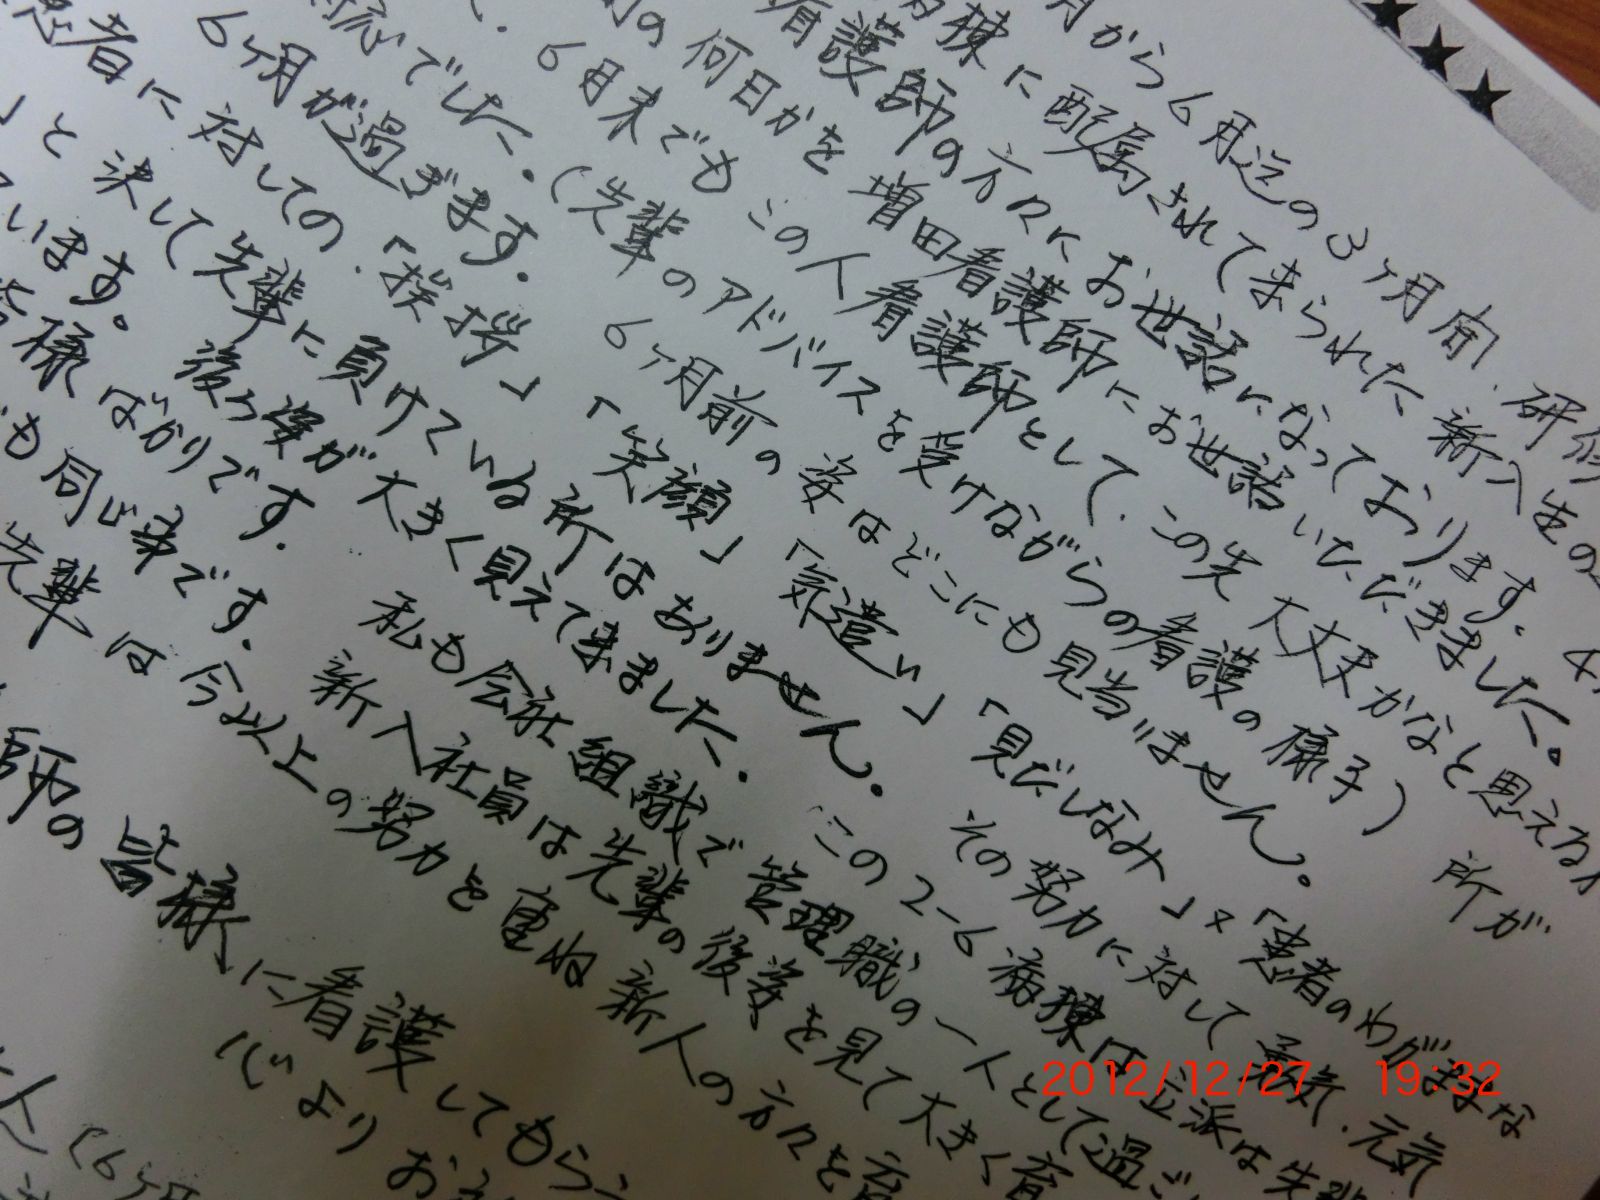 月から6月迄の3ヶ月間、研修
病棟に配属されて来られた新入生の
看護師の方々にお世話になっております。4
の何日かを増田看護師にお世話いただきました。
、6月末でもこの人看護師として、この先大丈夫かなと思える
応でした。(先輩のアドバイスを受けながらの看護の様子) 所が
6ヶ月が過ぎます。 6ヶ月前の姿はどこにも見当りません。
患者に対しての、「挨拶」「笑顔」「気遣い」「見だしなみ」×「患者のわがままな
」と決して先輩に負けている所はありません。 その努力に対して勇気、元気
ています。 後ろ姿が大きく見えて来ました。 この2-6病棟は立派は先輩
皆様ばかりです。 私も会社組織で管理職の一人として過ご
も同じ事です。 新入社員は先輩の後姿を見て大きく育
先輩は今以上の努力を重ね新人の方々を育
師の皆様に看護してもらう
心よりお
人(6ヶ月
2012/12/27 19:32